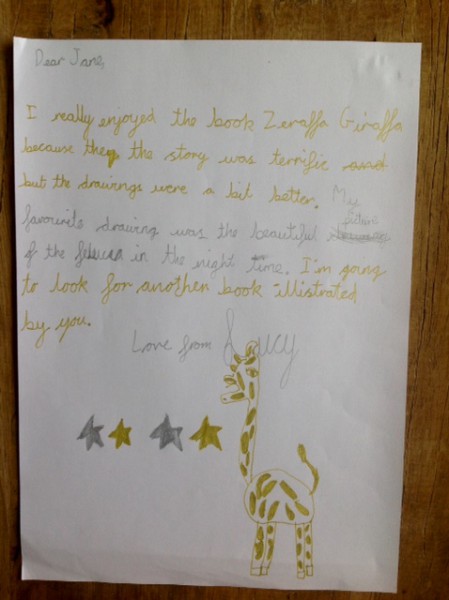 Dear Jane,
I really enjoyed the book Zeraffa Giraffa
because they the story was terrific and
but the drawings were a bit better. My
favourite drawing was the beautiful picture
of the in the night time. I'm going
to look for another book illustrated
by you.
Love from Lucy